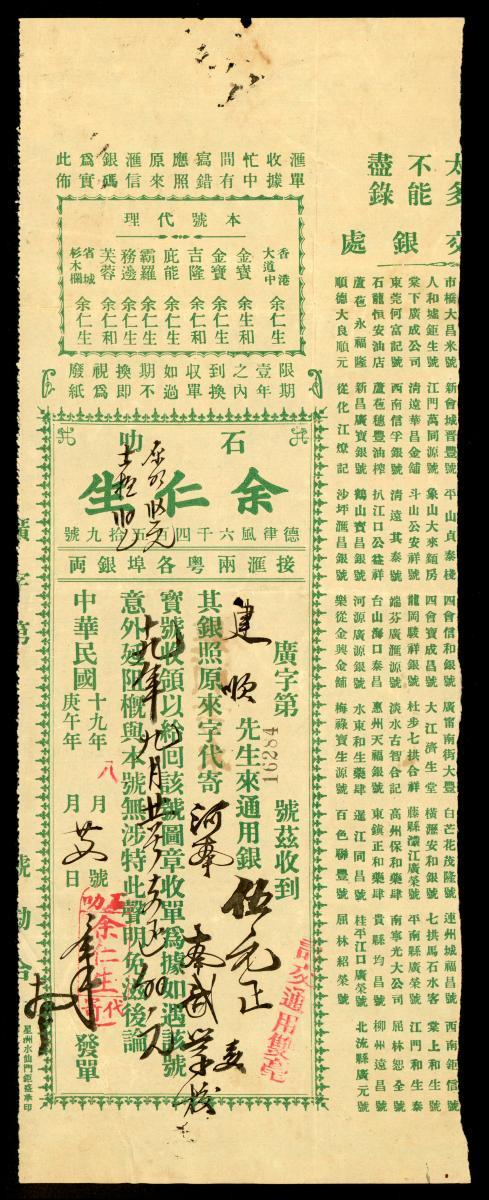 太多
不能
盡錄
交銀處
市橋大昌米號 新會城晋豐號 平山貞泰棧 四會信和銀號 廣甯南街大豐 白芒花茂隆號 連州城福昌號 西南鉅信號
人和墟鉅生號 江門萬同源號 象山大來葯房 四會寶成昌號 大江濟生堂 橫瀝安和銀號 七拱馬石水客 棠上和生號
棠下廣成公司 清遠華昌金舖 斗山公安祥號 龍岡駿祥銀號 杜步七拱合祥 藤縣濛江廣榮號 平南縣廣榮號 江門和生泰
東莞何富記號 西南信孚銀號 清遠其泰號 端芬廣滙源號 淡水古智合記 高州保和藥肆 南寧光大公司 屈林恕全號
石龍恒安油店 蘆苞穗豐油榨 扒江口公益祥 台山海口泰昌 惠州天福銀號 東鎮正和藥肆 貴縣均昌號 柳州遠昌號
蘆苞永福隆 新昌廣寶銀號 鶴山寶月銀號 河源廣源銀號 水東和生藥肆 暹江同昌號 桂平江口廣榮號 北流縣廣元號
順德大良順元 從化江燎記 沙坪滙昌銀號 樂從金興金舖 梅祿寶生源號 百色聯豐號 屈林紹榮號
滙單
收據
忙中
間有
寫錯
應照
原來
滙信
銀碼
爲實
此佈
本號代理
香港大道中 余仁生
金寶 余生和
金寶 余仁和
吉隆 余仁和
庇能 余仁生
霸羅 余仁生
務邊 余仁生
芙蓉 余仁生
省城杉木欄 余仁生
限期壹年之內到換收單如過期不換即視爲廢紙
石叻
余仁生
德律風六千四百五拾九號
接滙兩粵各埠銀両
廣字第16284號茲收到
建順先生來通用銀伍元正
其銀照原來字代寄
南武學校
寶號收領以紛回該號圖章收單爲據如遇該號
意外殀阻概與本號無涉特此聲明免滋後論
中華民國十九年 庚午年八月 號 月 日 發單
石叻余仁生代寄
訂交通用雙毫
廣字第 號勘合
星洲水仙門鉅盛承印